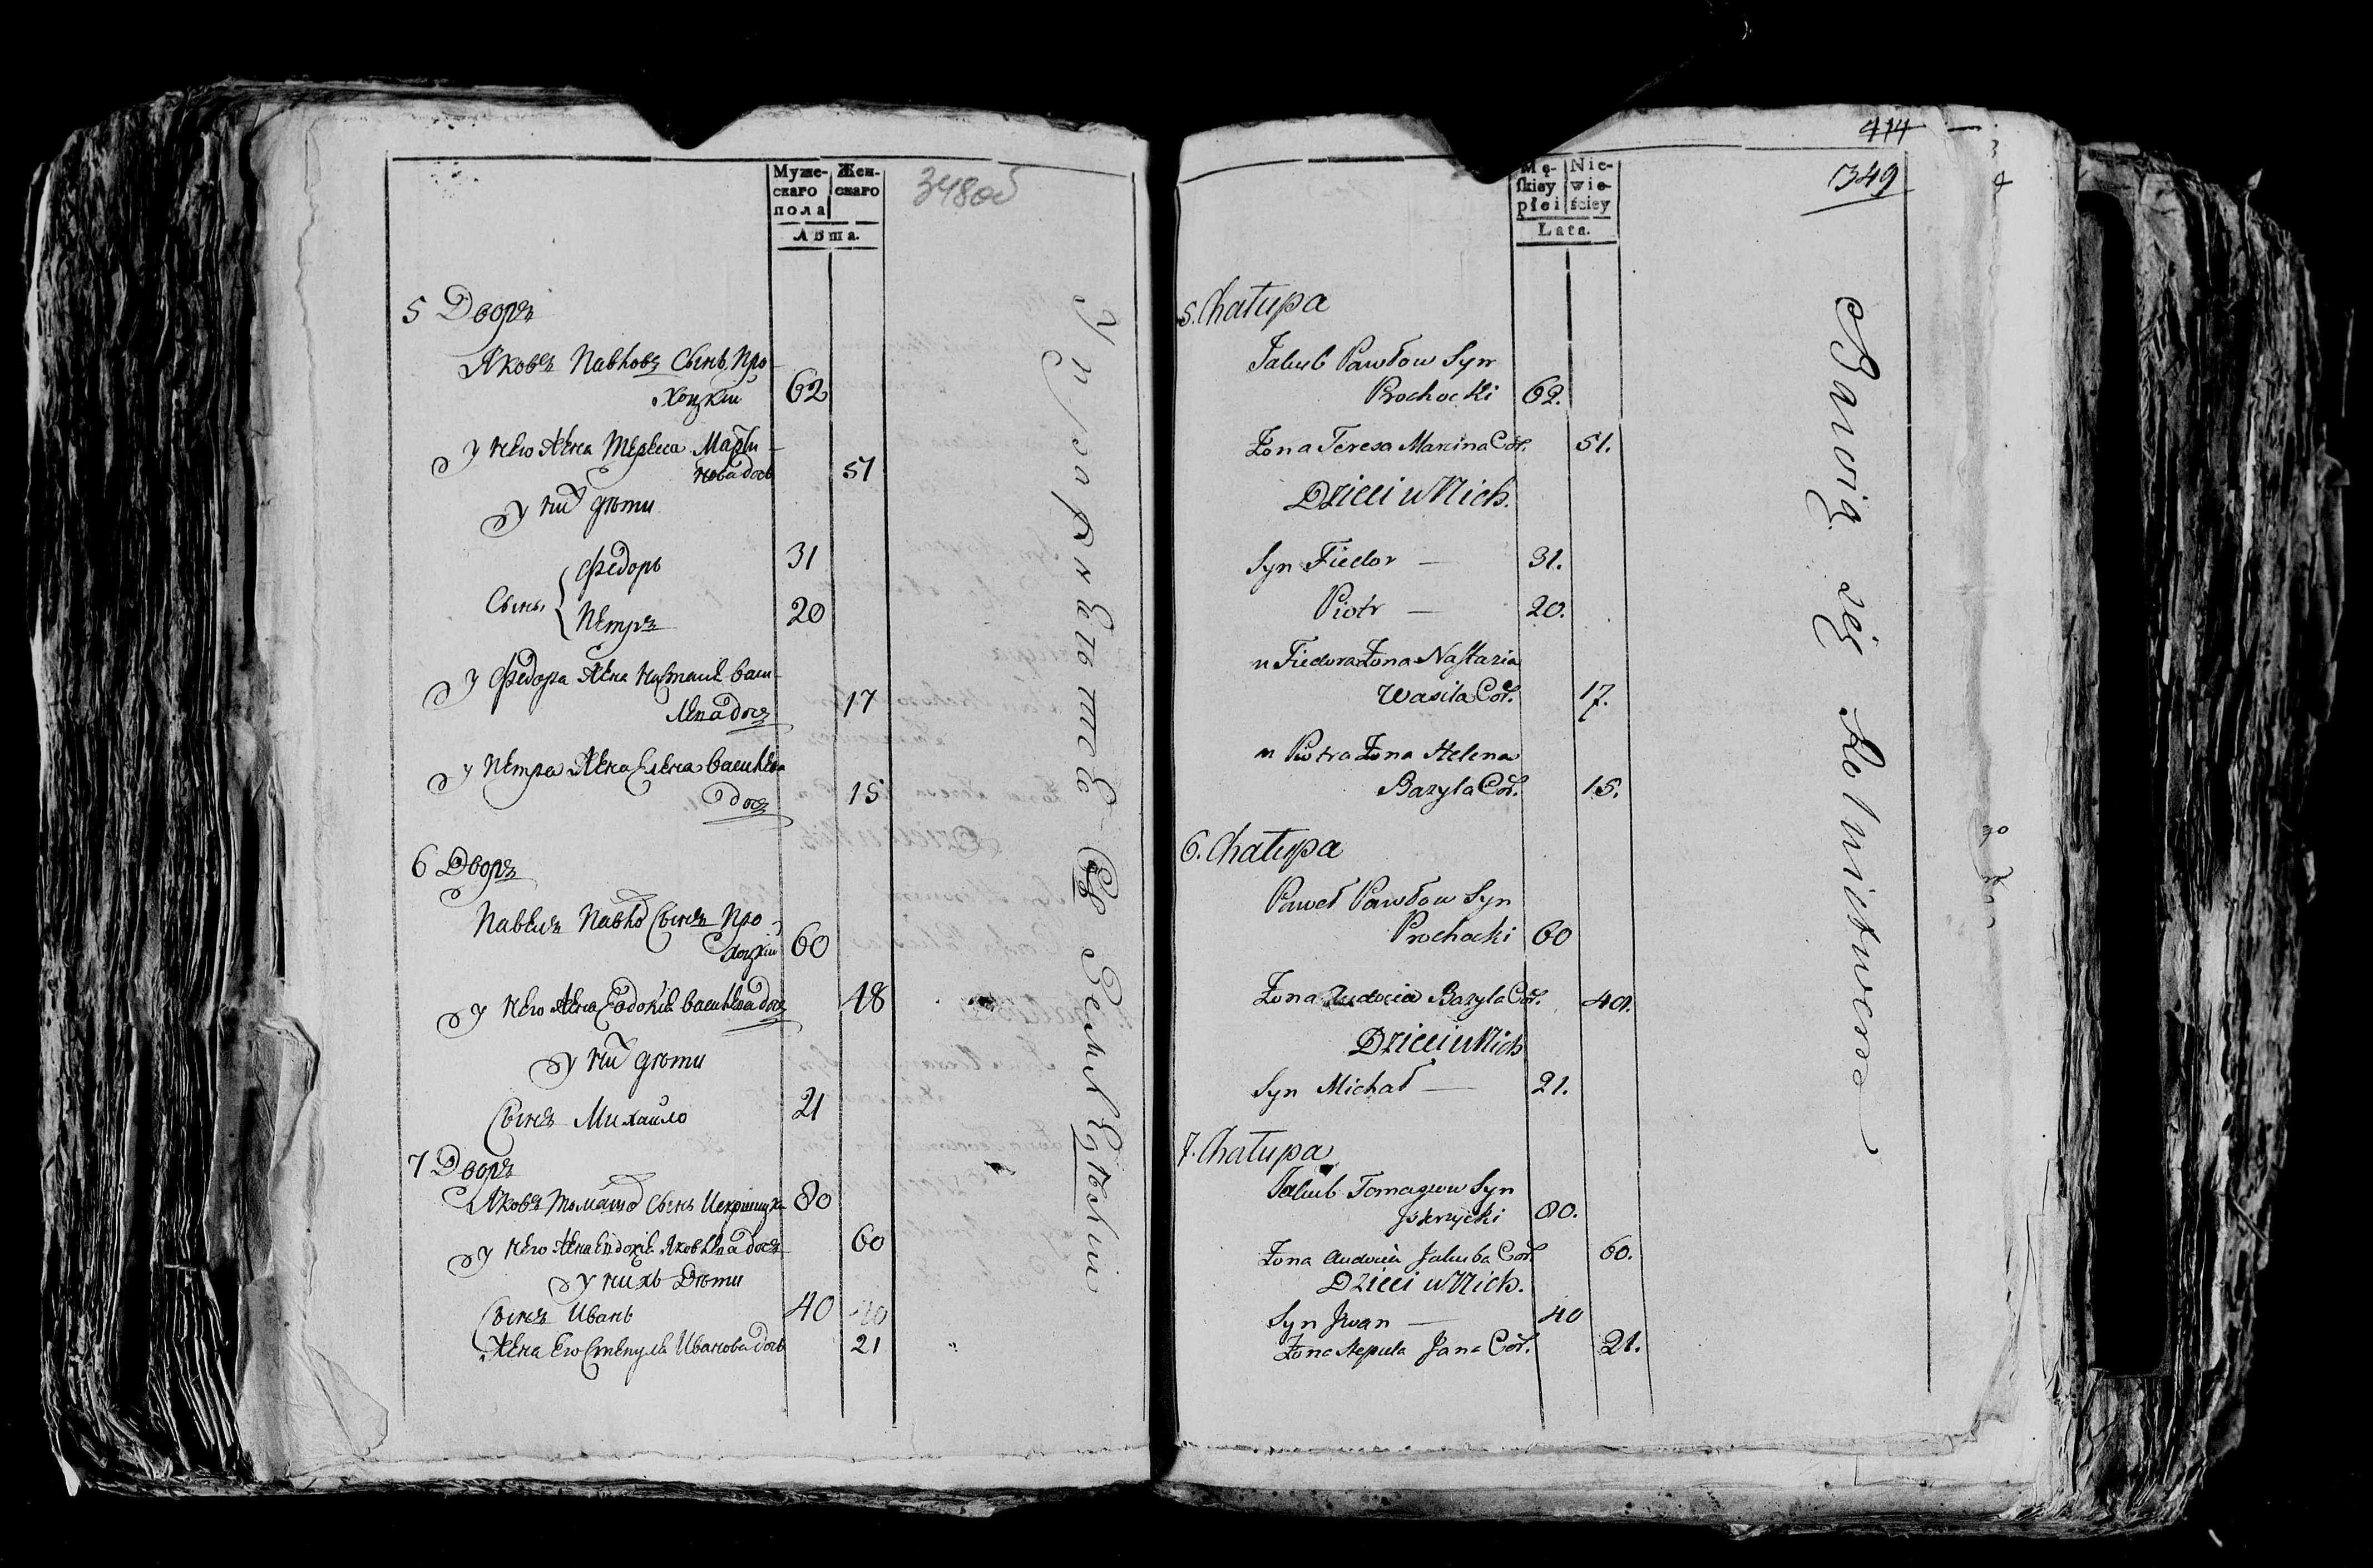 Муже-
скаго
пола
Жен-
скаго
Лѣта.
348об
5 Дворъ
Яковъ Павловъ Сынъ Про-
хоцкий 62
у него жена Тереса Марти-
нова дочь 51
у них дѣти
Сынъ, Федоръ 31
Петръ 20
у Федора жена Настасия Васи-
лева дочъ 17
у Петра жена Елена Василева
дочъ 15
6 Дворъ
Павелъ Павлов Сынъ Про-
хоцкий 60
у него жена Евдокия Василева дочъ 48
у них дѣти
Сынъ Михайло 21
7 Дворъ
Яковъ Томашов Сынъ 80
у него жена Евдокия Яковлева дочъ 60
у нихъ Дѣти
Сынъ Иванъ 40 40
Жена Его Степуля Иванова дочь 21
414
349
Mę-
skiey
płci
Nie-
wie-
ściey
Lata.
5. Chałupa
Jakub Pawłow Syn
Prochocki 62.
Żona Teresa Marcina Cór. 51.
Dzieci u Nich.
Syn Fiedor — 31.
Piotr — 20.
u Fiedora Żona Nastazia
Wasila Cór. 17.
u Piotra Żona Helena
Bazyla Cór. 15.
6. Chałupa
Paweł Pawłow Syn
Prochocki 60
Żona Audocia Bazyla Cór. 48.
Dzieci u Nich
Syn Michał — 21.
7. Chałupa
Jakub Tomaszow Syn
Jskrzycki 80.
Żona Audocia Jakuba Cór. 60.
Dzieci u Nich.
Syn Jwan — 40
Żona Stepula Jana Cór. 21.
Bawią się Rolnictwem